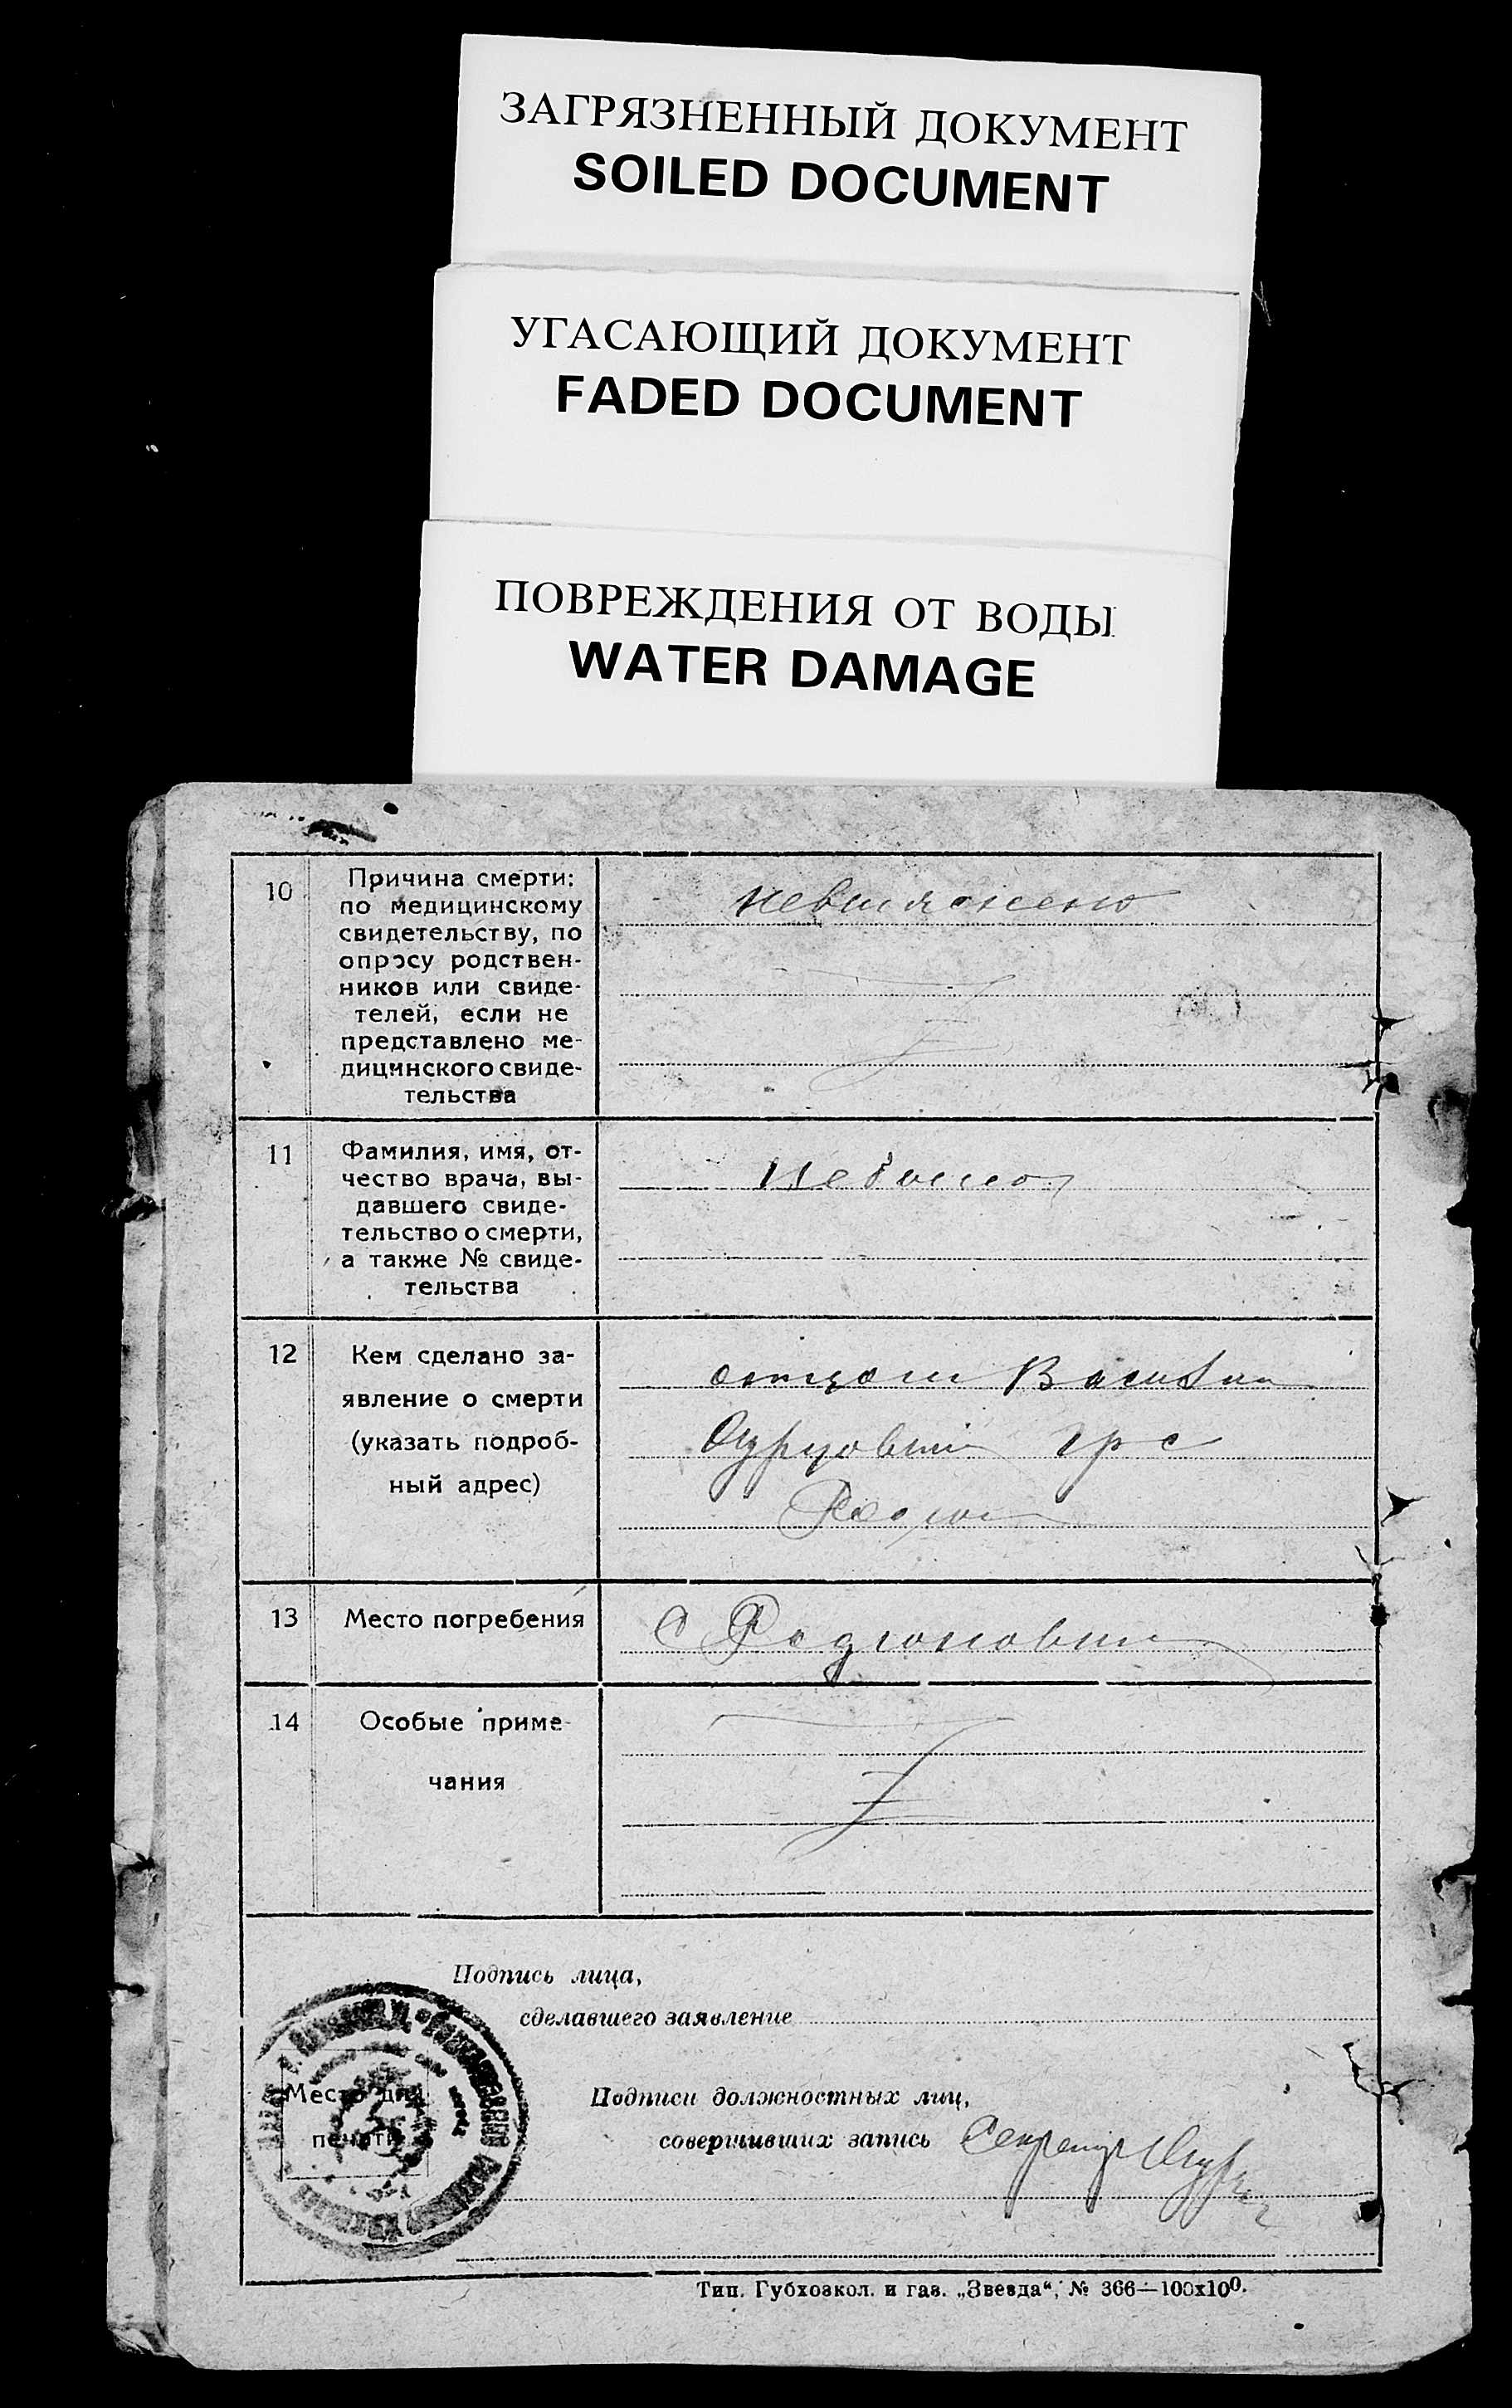 ЗАГРЯЗНЕННЫЙ ДОКУМЕНТ
SOILED DOCUMENT
УГАСАЮЩИЙ ДОКУМЕНТ
FADED DOCUMENT
ПОВРЕЖДЕНИЯ ОТ ВОДЫ
WATER DAMAGE
10
Причина смерти:
по медицинскому
свидетельству, по
опросу родствен-
ников или свиде-
телей, если не
представлено ме-
дицинского свиде-
тельства
11
Фамилия, имя, от-
чество врача, вы-
давшего свиде-
тельство о смерти,
а также № свиде-
тельства
не было
12
Кем сделано за-
явление о смерти
(указать подроб-
ный адрес)
отцом
13
Место погребения
С
14
Особые приме-
чания
Подпись лица,
сделавшего заявление
Место для
печати
Подписи должностных лиц,
совершивших запись
Тип. Губхозкол. и газ. „Звезда“, № 366—100х100.